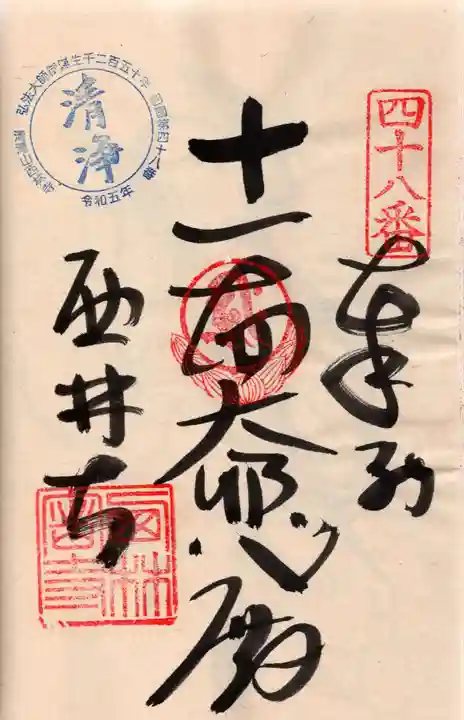 四十八番
奉納
十一面大悲殿
西林寺
弘法大師御誕生千二百五十年
四国第四十八番
清浄
令和五年